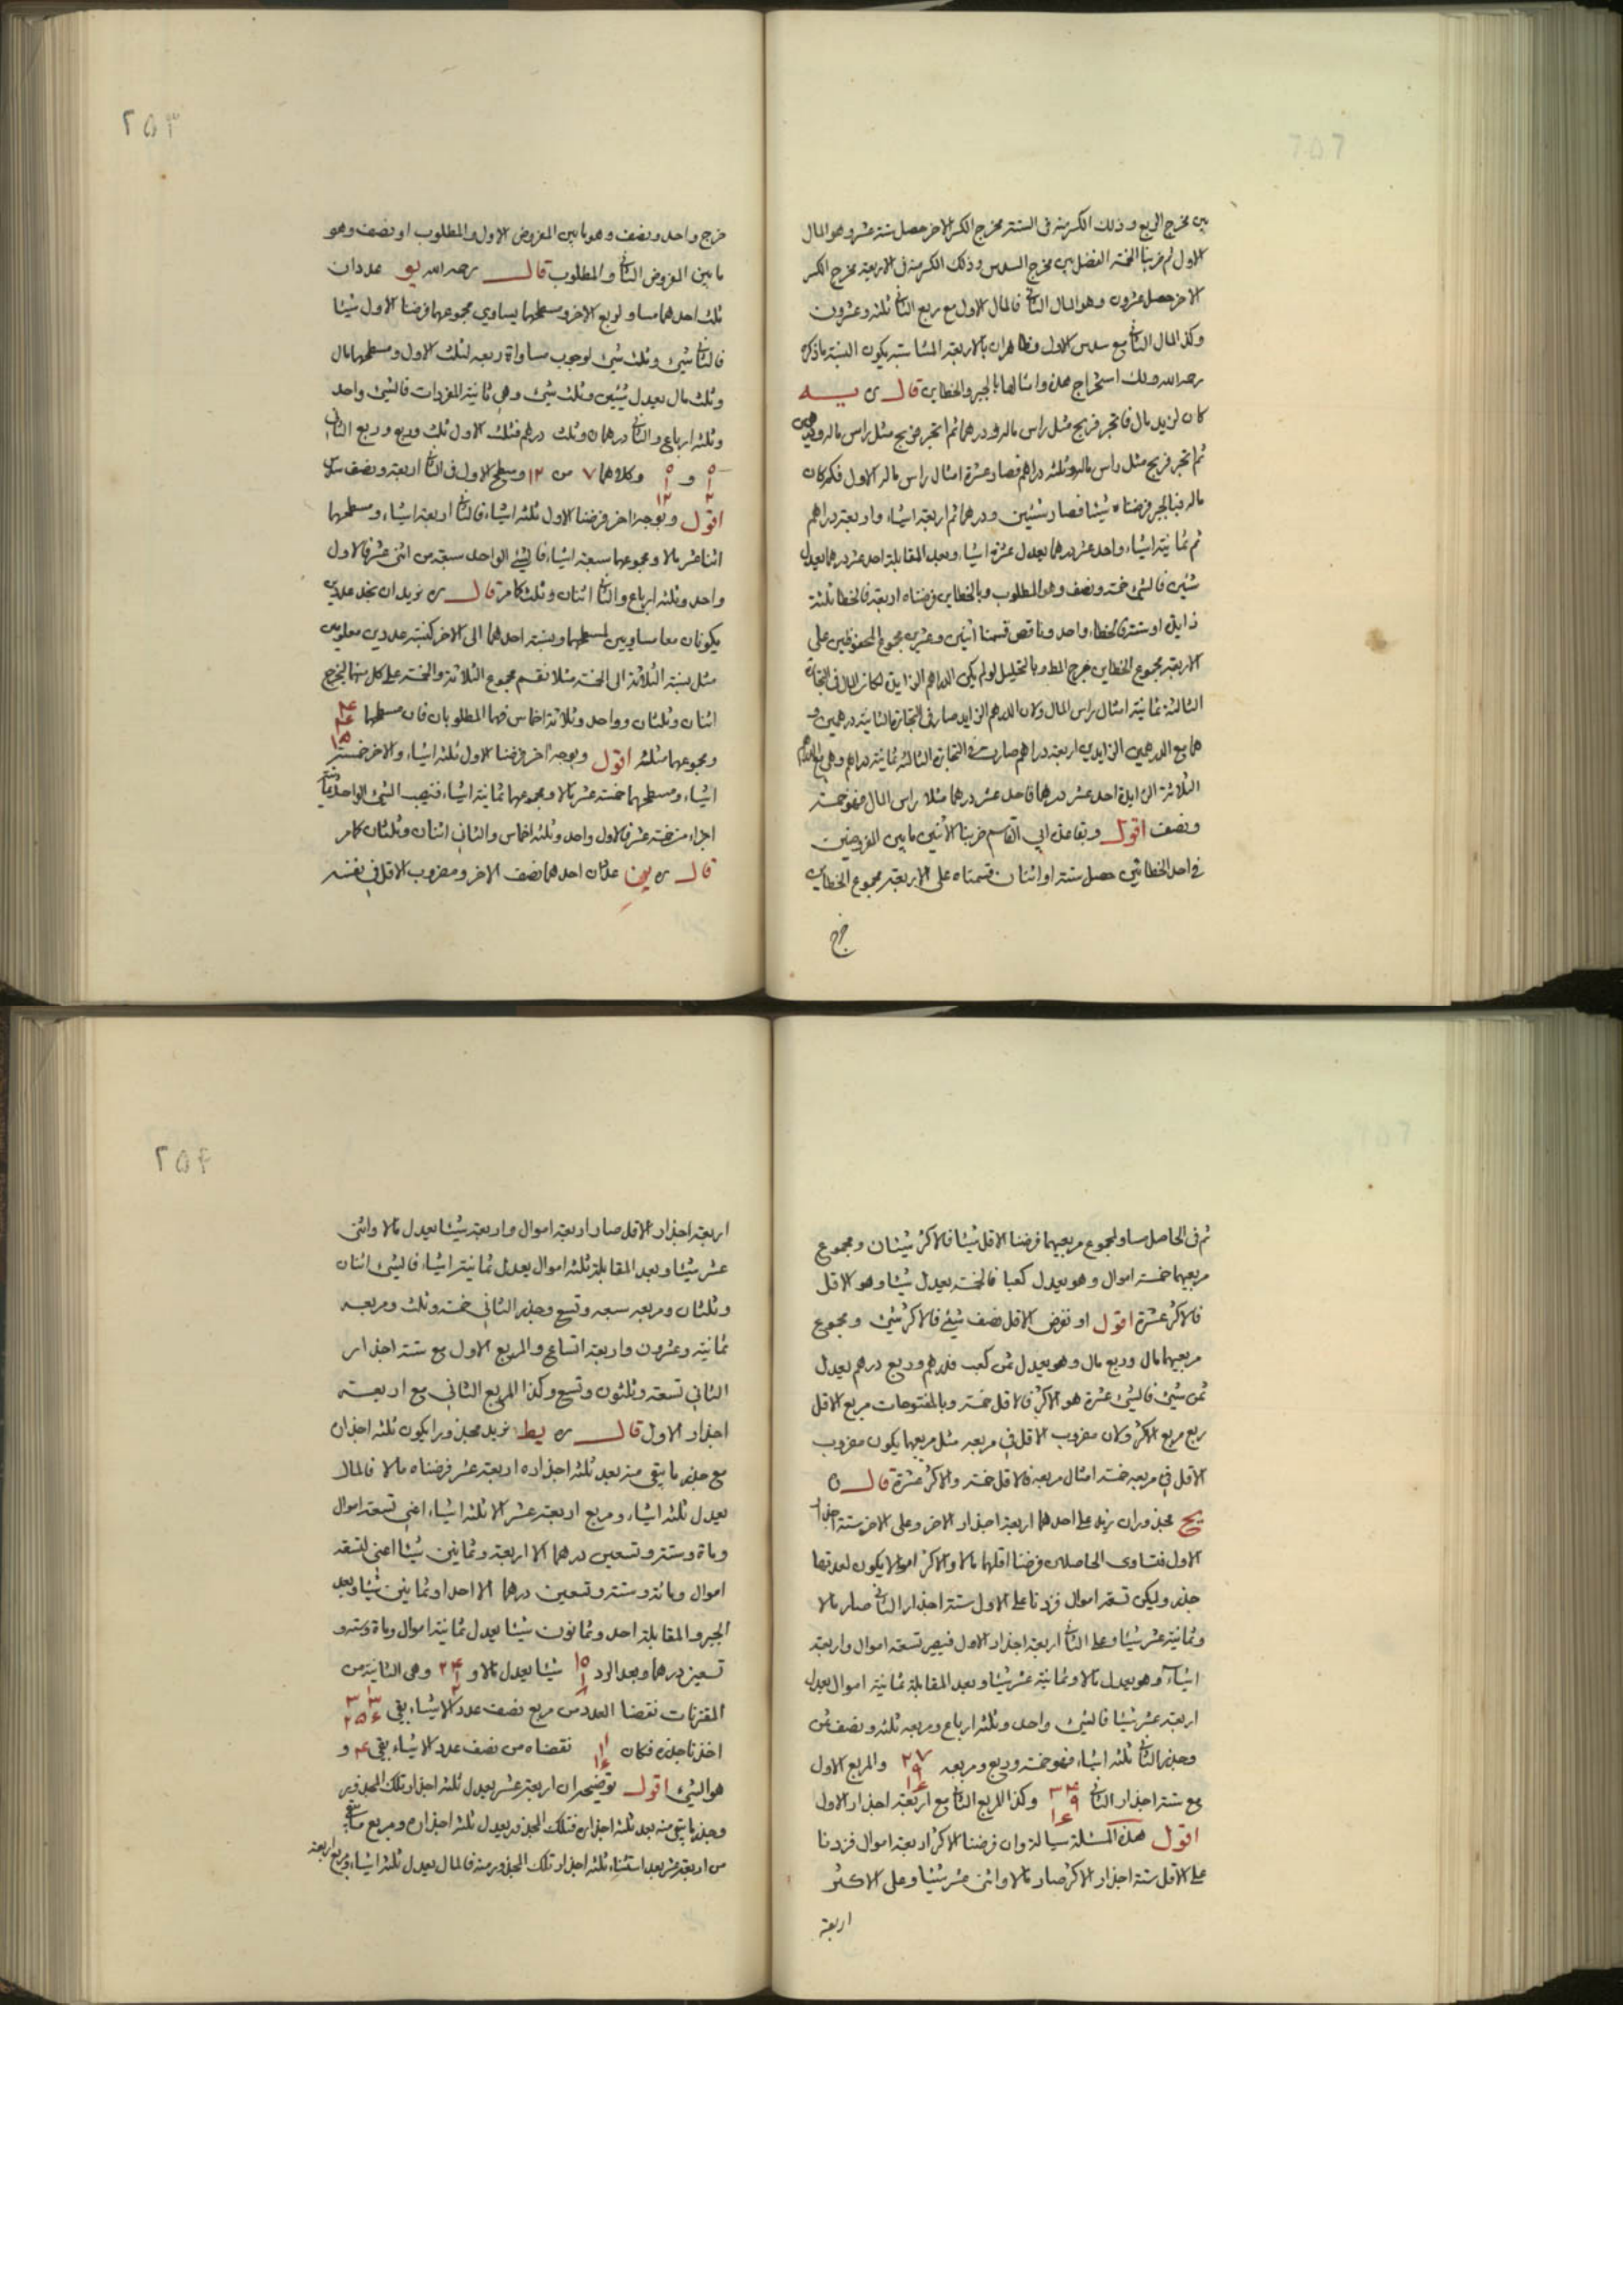 بين مخرج الربع وذلك الكسر منه في الستة مخرج الكسر الاخر حصل ستة عشر وهو المال
الاول ثم ضربنا الخمسة الفضل بين مخرج السدس وذلك الكسر منه في الاربعة مخرج الكسر
الاخر حصل عشرون وهو المال الثاني فالمال الاول مع ربع الثاني ثلثة وعشرون
وكذا المال الثاني مع سدس الاول وظاهر ان بالاربعة المتناسبة يكون النسبة ما ذكره
رحمه الله ولك استخراج هذه وامثالها بالجبر والخطاين قال ره يه
كان لزيد مال فاتجر فربح مثل راس ماله ودرهما ثم اتجر فربح مثل راس ماله ودرهمين
ثم اتجر فربح مثل راس ماله وثلثة دراهم فصار عشرة امثال راس ماله الاول فكم كان
ماله فبالجبر فرضناه شيئا فصار شيئين ودرهما ثم اربعة اشياء واربعة دراهم
ثم ثمانية اشياء واحد عشر درهما يعدل عشرة اشياء وبعد المقابلة احد عشر درهما يعدل
شيئين فالشئ خمسة ونصف وهو المطلوب وبالخطاين فرضناه اربعة فالخطا ثلثة
زايد او ستة فالخطاء واحد وناقص قسمنا اثنين وعشرين مجموع المحفوظين على
الاربعة مجموع الخطاين خرج المط وبالتحليل لو لم يكن الدراهم الزايدة لكان المال في التجارة
الثالثة ثمانية امثال راس المال ولان الدرهم الزايد صار في التجارة الثانية درهمين و
هما مع الدرهمين الزايدين اربعة دراهم صارت في التجارة الثالثة ثمانية دراهم وهي مع الدراهم
الثلاثة الزايدة احد عشر درهما فاحد عشر درهما مثلا راس المال فهو خمسة
ونصف اقول وبقاعدة ابي القاسم ضربنا الاثنين ما بين المفروضين
في احد الخطائين حصل ستة او اثنان قسمناه على الاربعة مجموع الخطاين
خرج
٢٥٣
خرج واحد ونصف وهو ما بين المفروض الاول والمطلوب او نصف وهو
ما بين المفروض الثاني والمطلوب قال رحمه الله يو عددان
ثلث احدهما مساو لربع الاخر ومسطحهما يساوي مجموعهما فرضنا الاول شيئا
فالثاني شئ وثلث شئ لوجوب مساواة ربعه لثلث الاول ومسطحهما مال
وثلث مال يعدل شيئين وثلث شئ وهي ثانية المفردات فالشئ واحد
وثلثة ارباع والثاني درهمان وثلث درهم فثلث الاول ثلث وربع وربع الثاني
و وكلاهما ٧ من ١٢ ومسطح الاول في الثاني اربعة ونصف سدس
اقول وبوجه اخر فرضنا الاول ثلثة اشياء فالثاني اربعة اشياء ومسطحهما
اثنا عشر مالا ومجموعهما سبعة اشياء فالشئ الواحد سبعة من اثنى عشر فالاول
واحد وثلثة ارباع والثاني اثنان وثلث كامر قال ره نريد ان نجد عددين
يكونان معا مساويين لمسطحهما ونسبة احدهما الى الاخر كنسبة عددين معلومين
مثل نسبة الثلاثة الى الخمسة مثلا نقسم مجموع الثلاثة والخمسة على كل منهما ليخرج
اثنان وثلثان وواحد وثلاثة اخماس فهما المطلوبان فان مسطحهما
ومجموعهما مثلثه اقول وبوجه آخر فرضنا الاول ثلثة اشياء والاخر خمسة
اشياء ومسطحهما خمسة عشر مالا ومجموعهما ثمانية اشياء فنصيب الشئ الواحد ثمانية
اجزاء من خمسة عشر فالاول واحد وثلثة اخماس والثاني اثنان وثلثان كامر
قال ره يز عددان احدهما نصف الاخر ومضروب الاقل في نفسه
ثم في الحاصل مساو لمجموع مربعيهما فرضنا الاقل شيئا فالاكثر شيئان ومجموع
مربعيهما خمسة اموال وهو يعدل كعبا فالخمسة يعدل شيئا وهو الاقل
فالاكثر عشرة اقول او نفرض الاقل نصف شيئ فالاكثر شئ ومجموع
مربعيهما مال وربع مال وهو يعدل ثمن كعب فدرهم وربع درهم يعدل
ثمن شئ فالشئ عشرة هو الاكثر فالاقل خمسة وبالمفتوحات مربع الاقل
ربع مربع الاكثر ولان مضروب الاقل في مربعه مثل مربعيهما يكون مضروب
الاقل في مربعه خمسة امثال مربعه فالاقل خمسة والاكثر عشرة قال ره
يح مجذوران نزيد على احدهما اربعة اجذار الاخر وعلى الاخر ستة اجذار
الاول فتساوى الحاصلان فرضنا اقلهما مالا والاكثر اموالا يكون لعدتها
جذر وليكن تسعة اموال فزدنا على الاول ستة اجذار الثاني صار مالا
وثمانية عشر شيئا وعلى الثاني اربعة اجذار الاول فيصير تسعة اموال واربعة
اشياء وهو يعدل مالا وثمانية عشر شيئا وبعد المقابلة ثمانية اموال يعدل
اربعة عشر شيئا فالشئ واحد وثلثة ارباع ومربعه ثلثة ونصف ثمن
وجذر الثاني ثلثة اشياء فهو خمسة وربع ومربعه ٢٧ ٩ ١٦ والمربع الاول
مع ستة اجذار الثاني ٣٤ ٩ ١٦ وكذا المربع الثاني مع اربعة اجذار الاول
اقول هذه المسئلة سيالة وان فرضنا الاكثر اربعة اموال فزدنا
على الاقل ستة اجذار الاكثر صار مالا واثنى عشر شيئا وعلى الاكثر
اربعة
٢٥۴
اربعة اجذار الاقل صار اربعة اموال واربعة شيئا يعدل مالا واثنى
عشر شيئا وبعد المقابلة ثلثة اموال يعدل ثمانية اشياء فالشئ اثنان
وثلثان ومربعه سبعة وتسع وجذر الثاني خمسة وثلث ومربعه
ثمانية وعشرون واربعة اتساع والمربع الاول مع ستة اجذار
الثاني تسعة وثلثون وتسع وكذا المربع الثاني مع اربعة
اجذار الاول قال ره يط نريد مجذورا يكون ثلثة اجذاره
مع جذر ما يبقى منه بعد ثلثة اجذاره اربعة عشر فرضناه مالا فالمال
يعدل ثلثة اشياء ومربع اربعة عشر الا ثلثة اشياء اعنى تسعة اموال
وماة وستة وتسعين درهما الا اربعة وثمانين شيئا اعنى تسعة
اموال ومائة وستة وتسعين درهما الا احدا وثمانين شيئا وبعد
الجبر والمقابلة احد وثمانون شيئا يعدل ثمانية اموال وماة وستة و
تسعين درهما وبعد الرد شيئا يعدل مالا و وهى الثانية من
المقترنات نقصنا العدد من مربع نصف عدد الاشياء بقي
اخذنا جذره فكان نقصناه من نصف عدد الاشياء بقي ۴ و
هو الشئ اقول توضيحه ان اربعة عشر يعدل ثلثة اجذار تلك المجذور
وجذر ما يبقى منه بعد ثلثة اجذاره فتلك المجذور يعدل ثلثة اجذاره ومربع ما بقي
من اربعة عشر بعد استثناء ثلثة اجذار تلك المجذور منه فالمال يعدل ثلثة اشياء ومربع اربعة